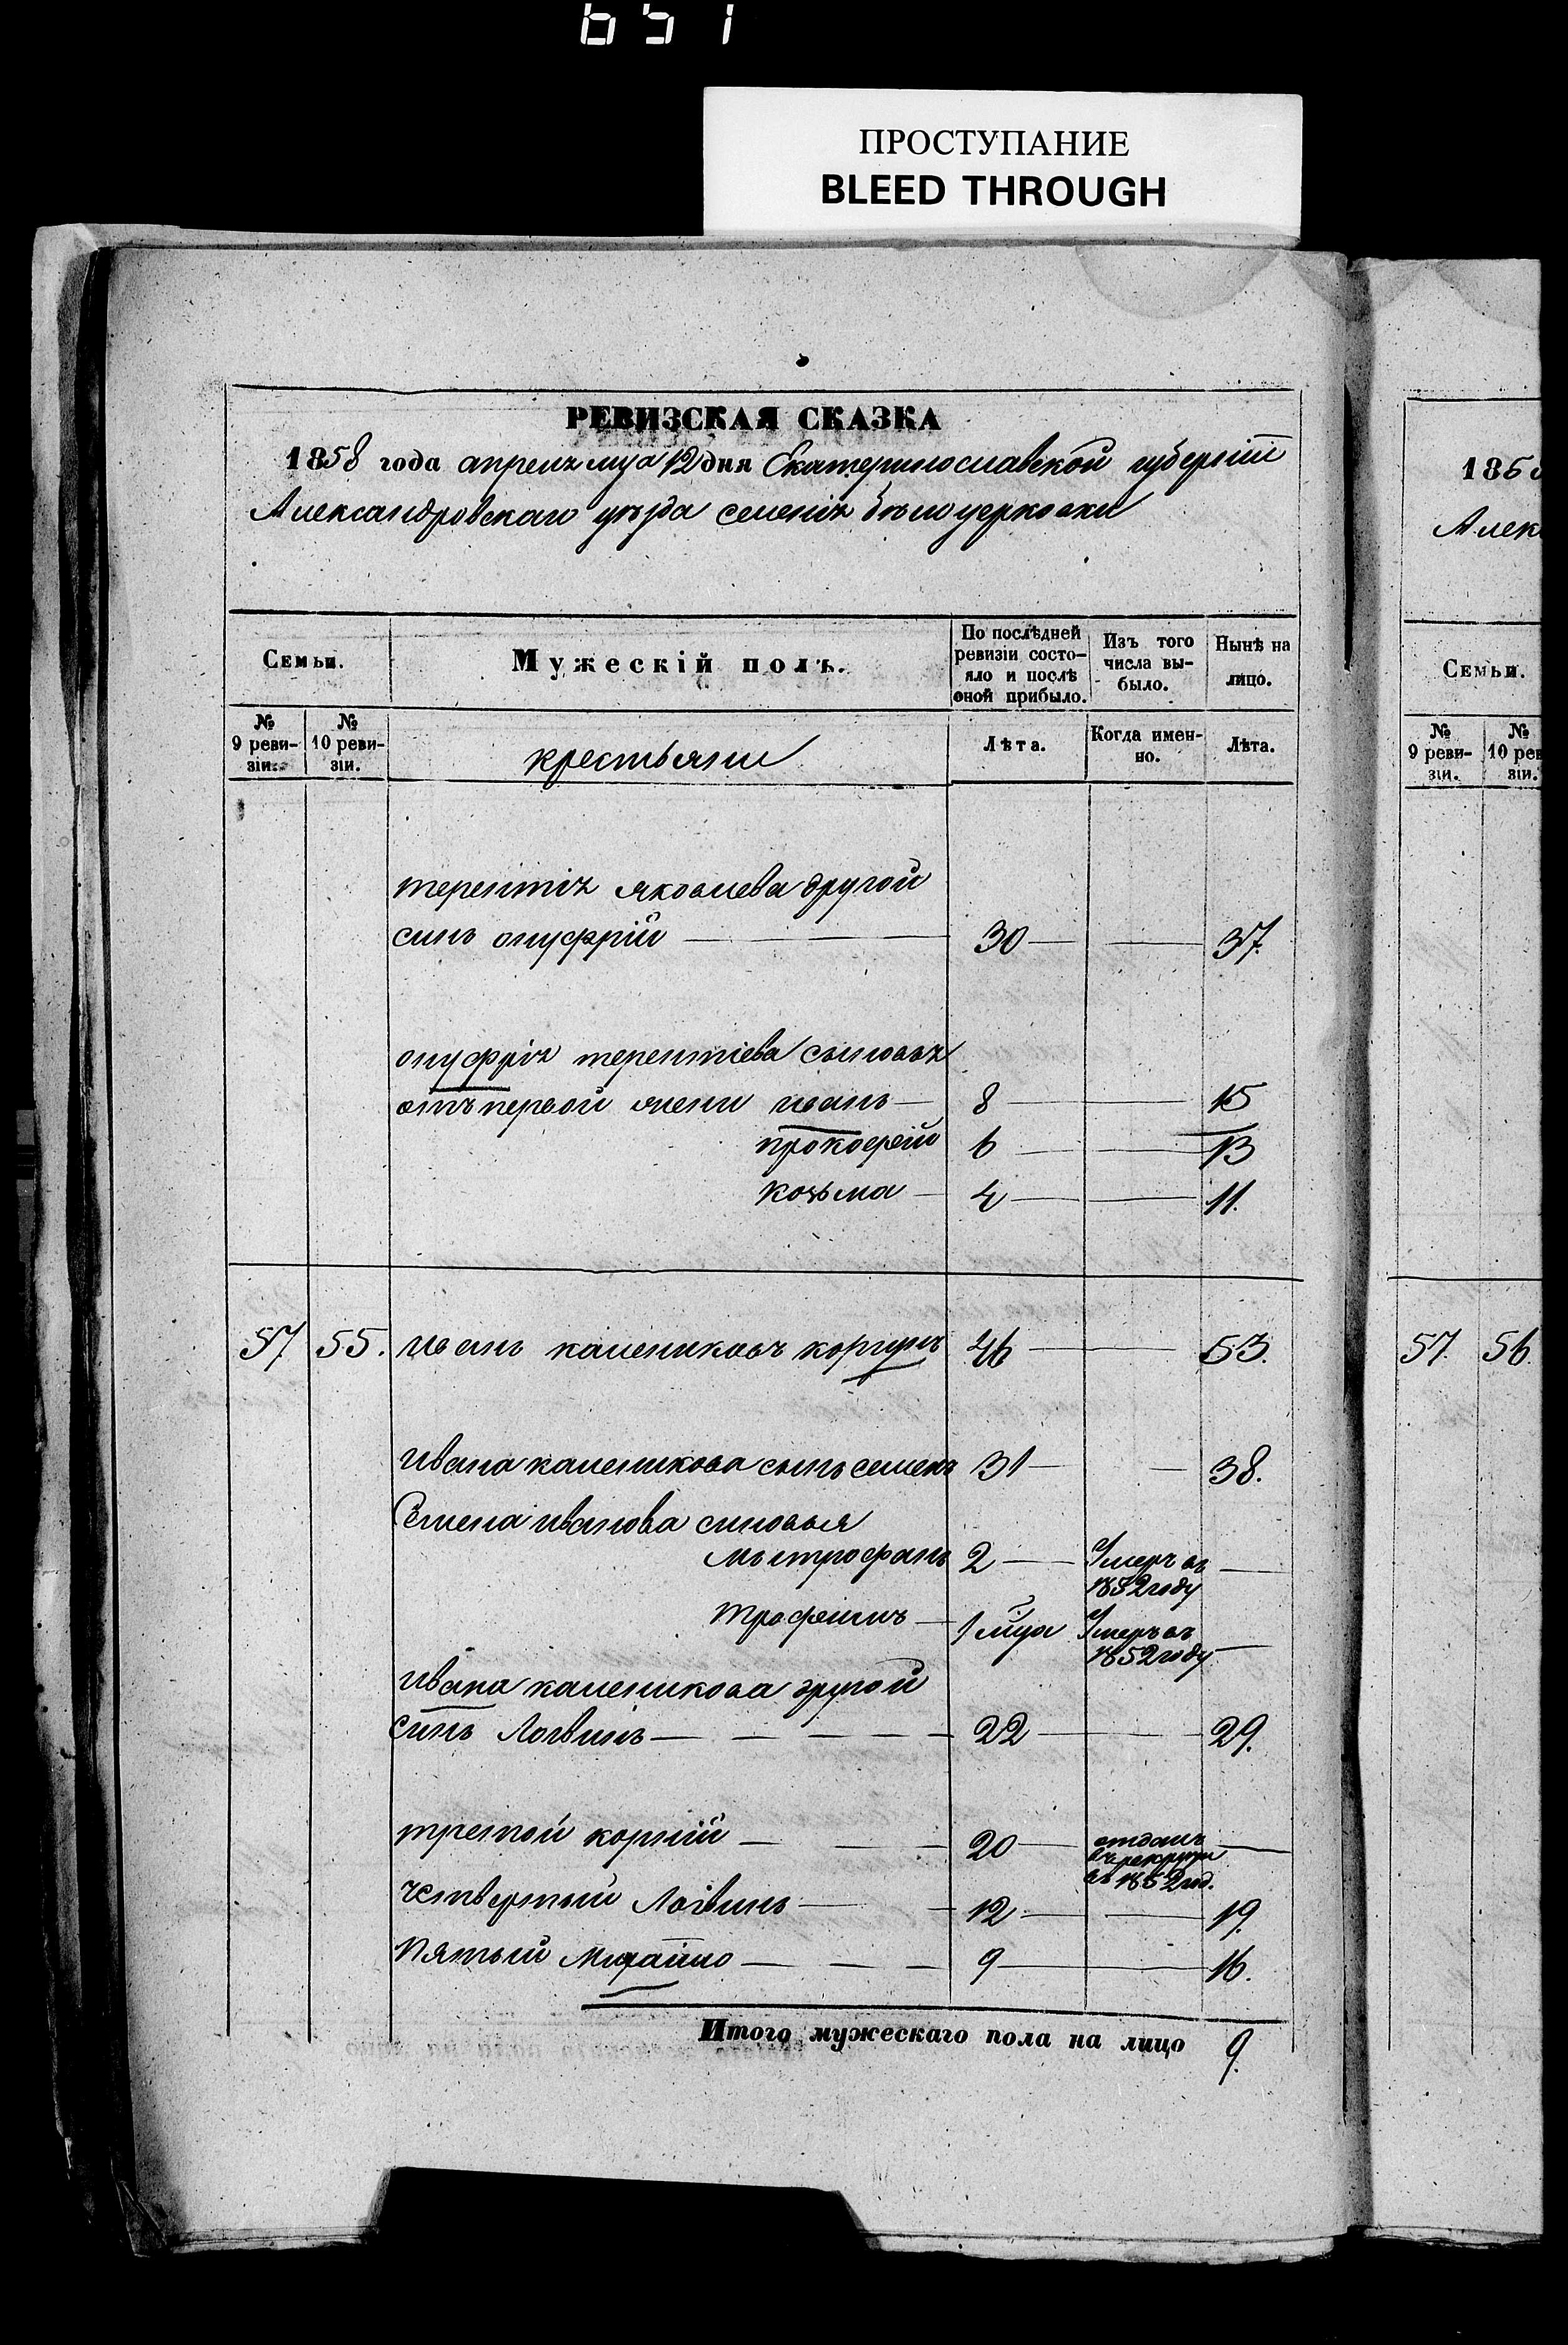 651
ПРОСТУПАНИЕ
BLEED THROUGH
РЕВИЗСКАЯ СКАЗКА
1858 года апреля мца 12 дня Екатеринославской губерніи
Александровскаго уѣзда селенія бѣлоцерковки
Семьи.
Мужескій полъ.
По послѣдней ревизіи состо-
яло и послѣ оной прибыло.
Изъ того числа вы-
было.
Нынѣ на лицо.
№ 9 реви-
зіи.
№ 10 реви-
зіи.
крестьяни
Лѣта.
Когда имен-
но.
Лѣта.
терентія яковлева другой
синъ онуфрій 30 37.
онуфрія терентіева сыновья
отъ первой жени иванъ 8 15
прокофій 6 13
козьма 4 11.
57 55. иванъ калениковъ 46 53.
ивана каленикова сынъ семенъ 31 38.
Семена иванова синовья
мытрофанъ 2 Умеръ въ
1852 году
трофимъ 1 мца Умеръ въ
1852 году
ивана каленикова другой
синъ Логвинъ 22 29.
третой корній 20 отданъ
в рекруты
въ 1852 год.
четвертый Логвинъ 12 19.
пятый михайло 9 16.
Итого мужескаго пола на лицо 9.
185
Алек
Семьи.
№ 9 реви-
зіи.
№ 10 рев
зіи.
57. 56.